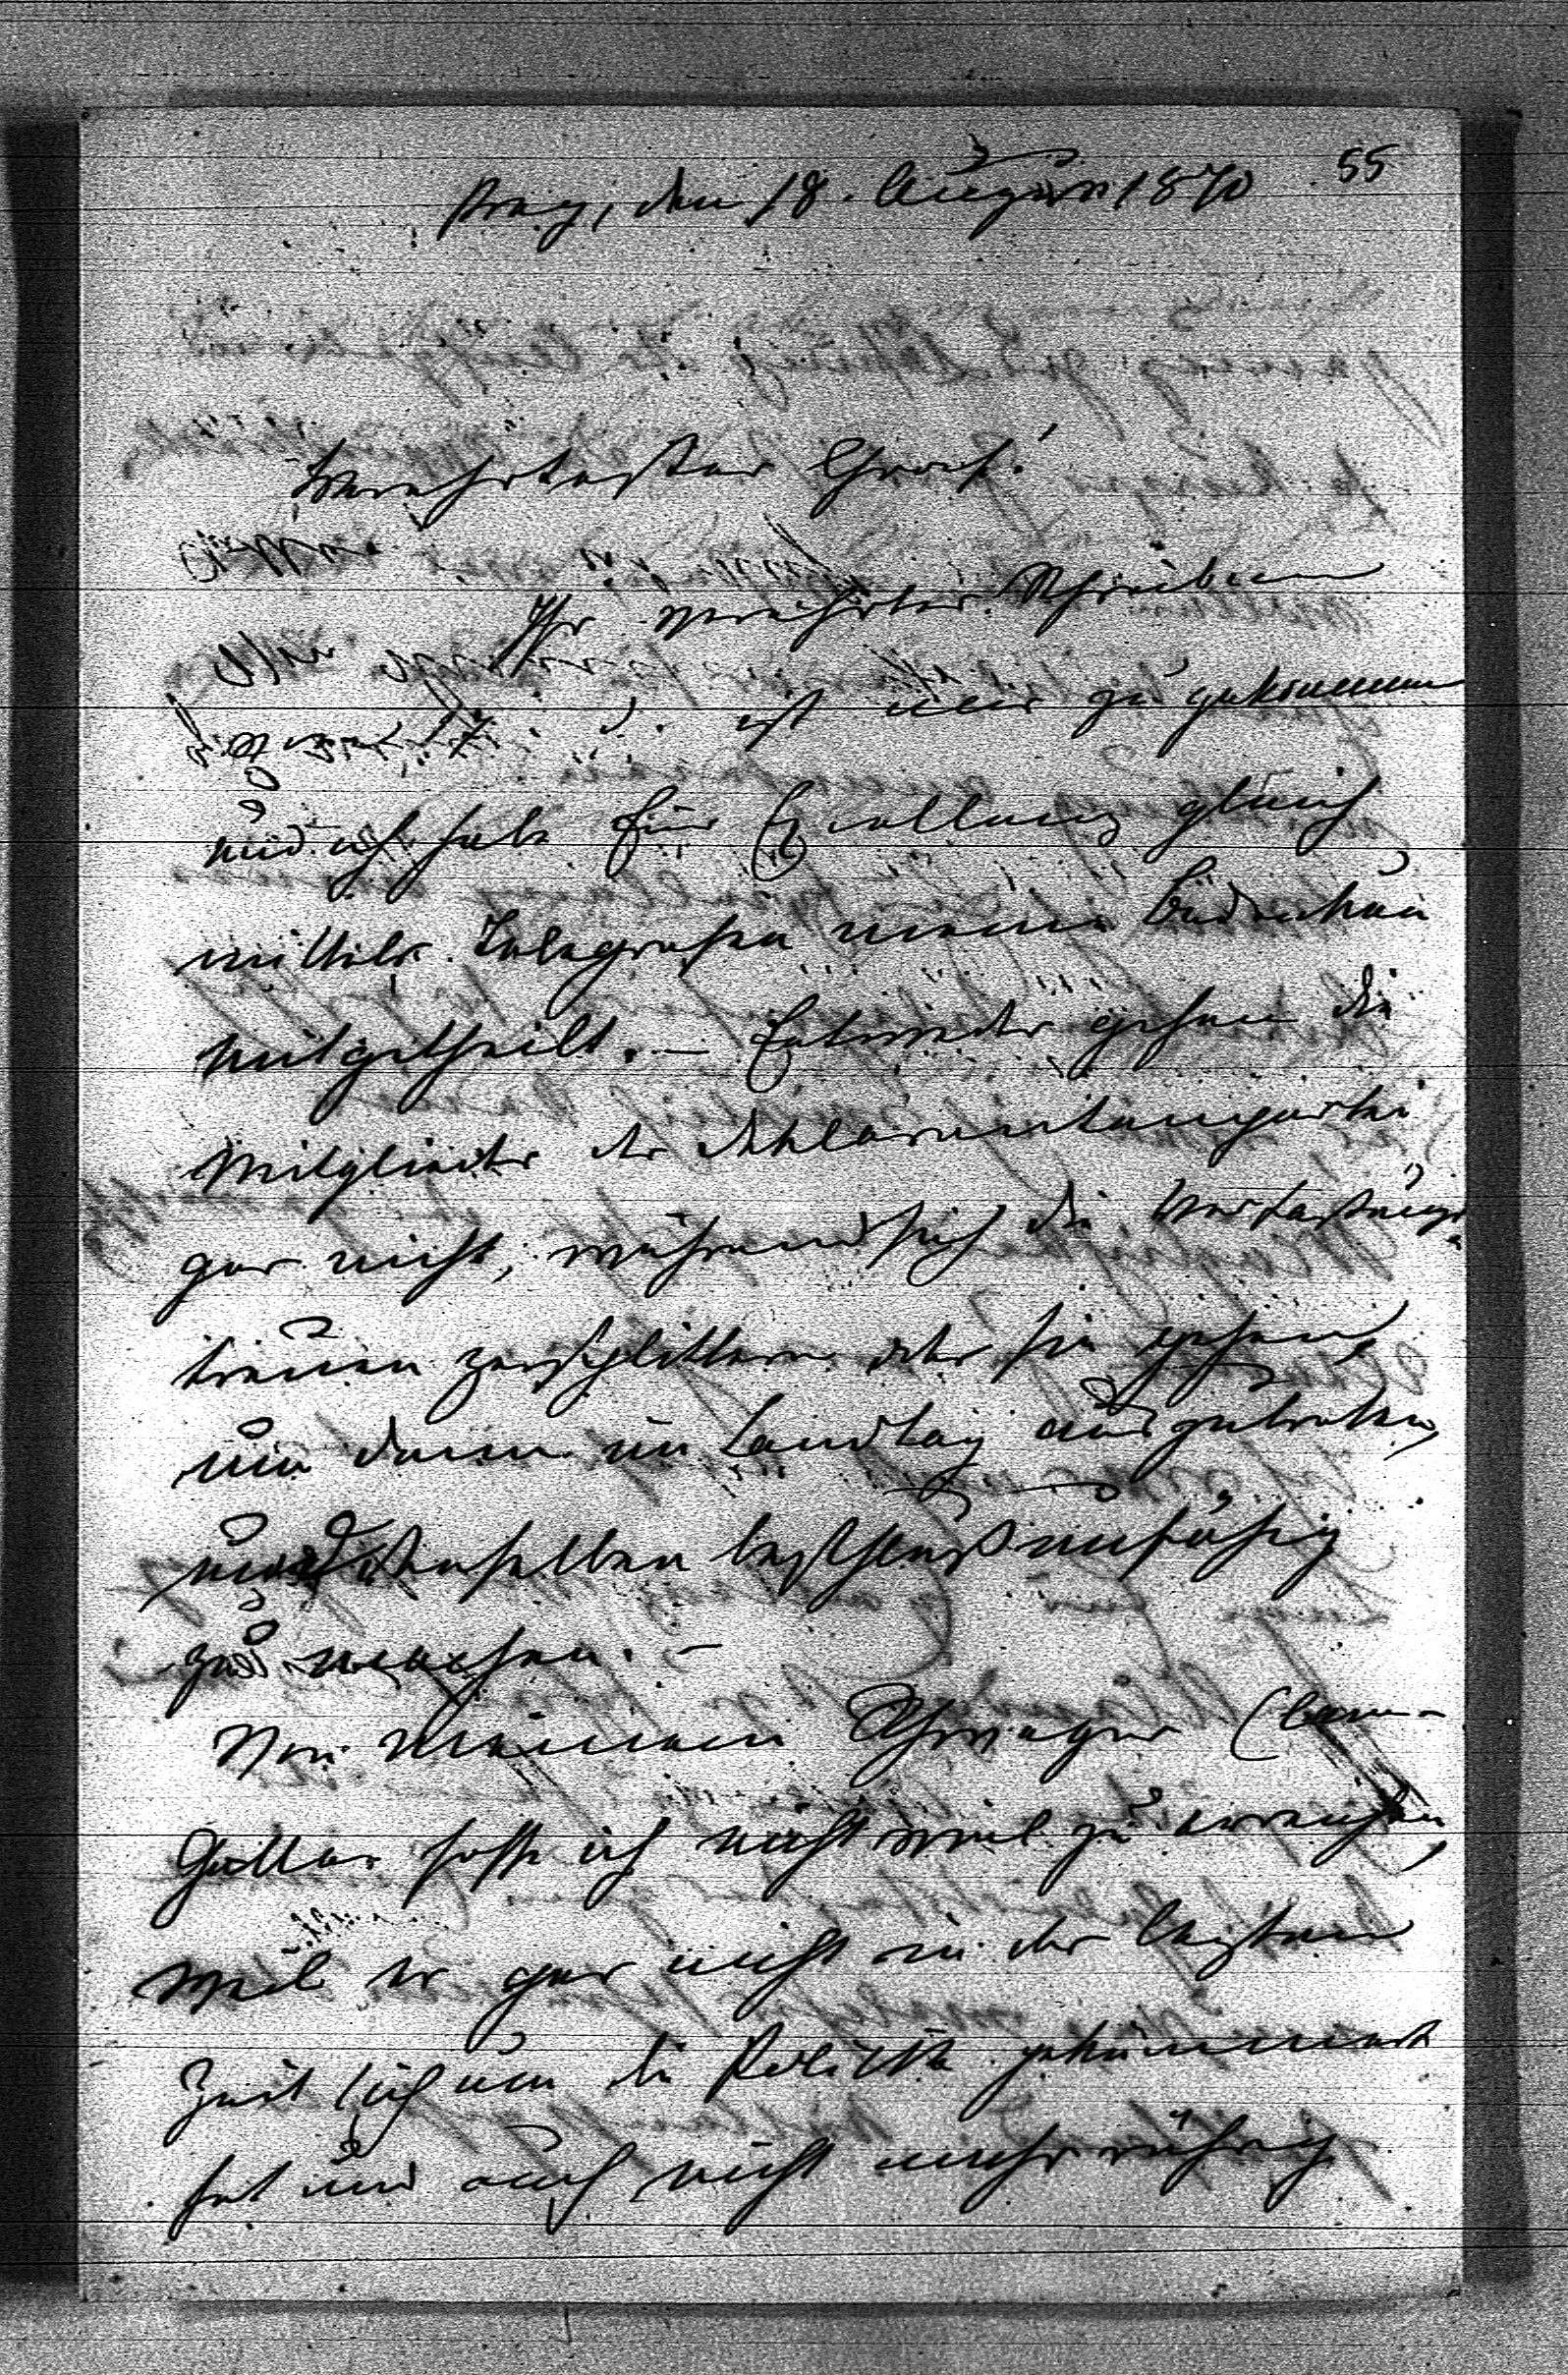 55
Prag, den 18. August 1870
Verehrtester Graf!
Ihr verehrtes Schreiben
vom 17. d. ist mir zugekommen
und ich habe Euer Excellenz gleich
mittels Telegrafen meine Bedenken
mitgetheilt. – Entweder gehen die
Mitglieder der Deklarantenpartei
gar nicht, während sich die Verfassungs-
treuen zersplittern oder sie gehen,
um dann im Landtag auszutreten
und denselben beschlußunfähig
zu machen. –
Von meinem Schwager Clam-
Gallas hoffe ich nicht viel zu erreichen,
weil er gar nicht in der letzten
Zeit sich um die Politik gekümmert
hat und auch nicht mehr rührig